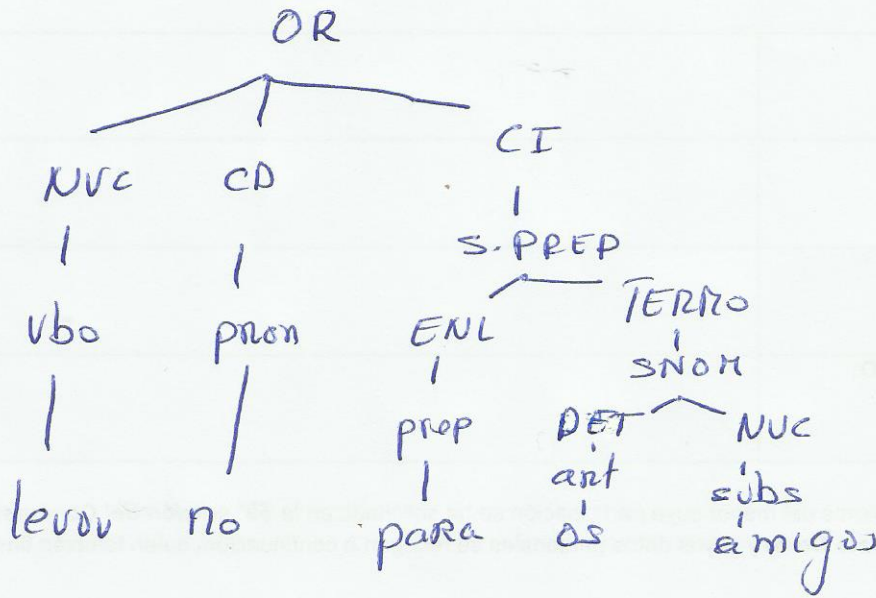 OR
NUC CD CI
S.PREP
vbo pron ENL TERMO
SNOM
prep DET NUC
art subs
levou no para os amigos